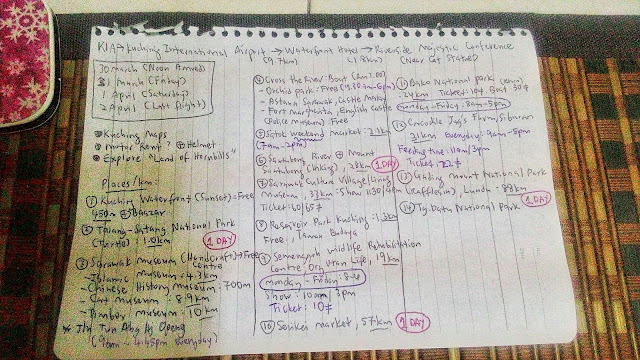 KIA → Kuching International Airport → Waterfront Hotel → Riverside Majestic Conference
(9.7km) (1.8km) (Near Cat Statue)
30 March (Noon Arrived)
31 March (Friday)
1 April (Saturday)
2 April (Last flight)
Kuching Maps
Motor Rent? Helmet
Explore "Land of Hornbills"
Places/km:
① Kuching Waterfront (Sunset) = Free
450m Bazaar
② Talang-Satang National Park
(Turtle) : 10km
1 DAY
③ Sarawak Museum (Handcraft) → Free
Centre
- Islamic museum = 4.3km
- Chinese History museum : 700m
- Cat museum : 8.9km
- Timber museum : 10km
Jln Tun Abg Hj Openg
(9am - 4:45pm everyday)
④ Cross the River : Boat (Rm1.00)
- Orchid park : Free (9.30am-6pm)
- Astana Sarawak, Castle Malay
- Fort Margherita, English Castle
(Police museum) : Free
⑤ Satok weekend market : 2.1km
(7am-2pm)
⑥ Santubong River Mount
Santubong (hiking), 28km
1 DAY
⑦ Sarawak Culture Village Living
Museum, 33km : Show 11:30/4pm
Ticket : 60/65
⑧ Reservoir Park Kuching : 1.3km
Free, Taman Budaya
⑨ Semenggoh Wildlife Rehabilitation
Centre Org Utan Life, 19km
Monday - Friday : 8-5
Show : 10am, 3pm
Ticket : 10
⑩ Serikei market, 57km
1 DAY
⑪ Bako National park
24km Ticket : 10 Boat 30
Monday - Friday : 8am-5pm
⑫ Crocodile Jong's Farm, Siburan
31km Everyday : 9am-5pm
Feeding time : 11am/3pm
Ticket : 22
⑬ Gading Mount National Park
(Rafflesia), Lundu - 88km
1 DAY
⑭ Tg. Datu National Park